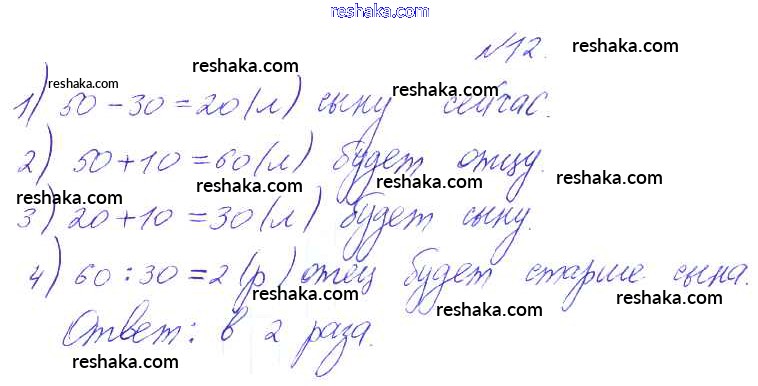 reshaka.com
№12. reshaka.com
reshaka.com reshaka.com reshaka.com
1) 50 - 30 = 20 (л) сыну сейчас.
2) 50 + 10 = 60 (л) будет отцу.
reshaka.com reshaka.com reshaka.com reshaka.com
3) 20 + 10 = 30 (л) будет сыну.
4) 60 : 30 = 2 (р) отец будет старше сына.
reshaka.com reshaka.com reshaka.com
Ответ: в 2 раза.
reshaka.com